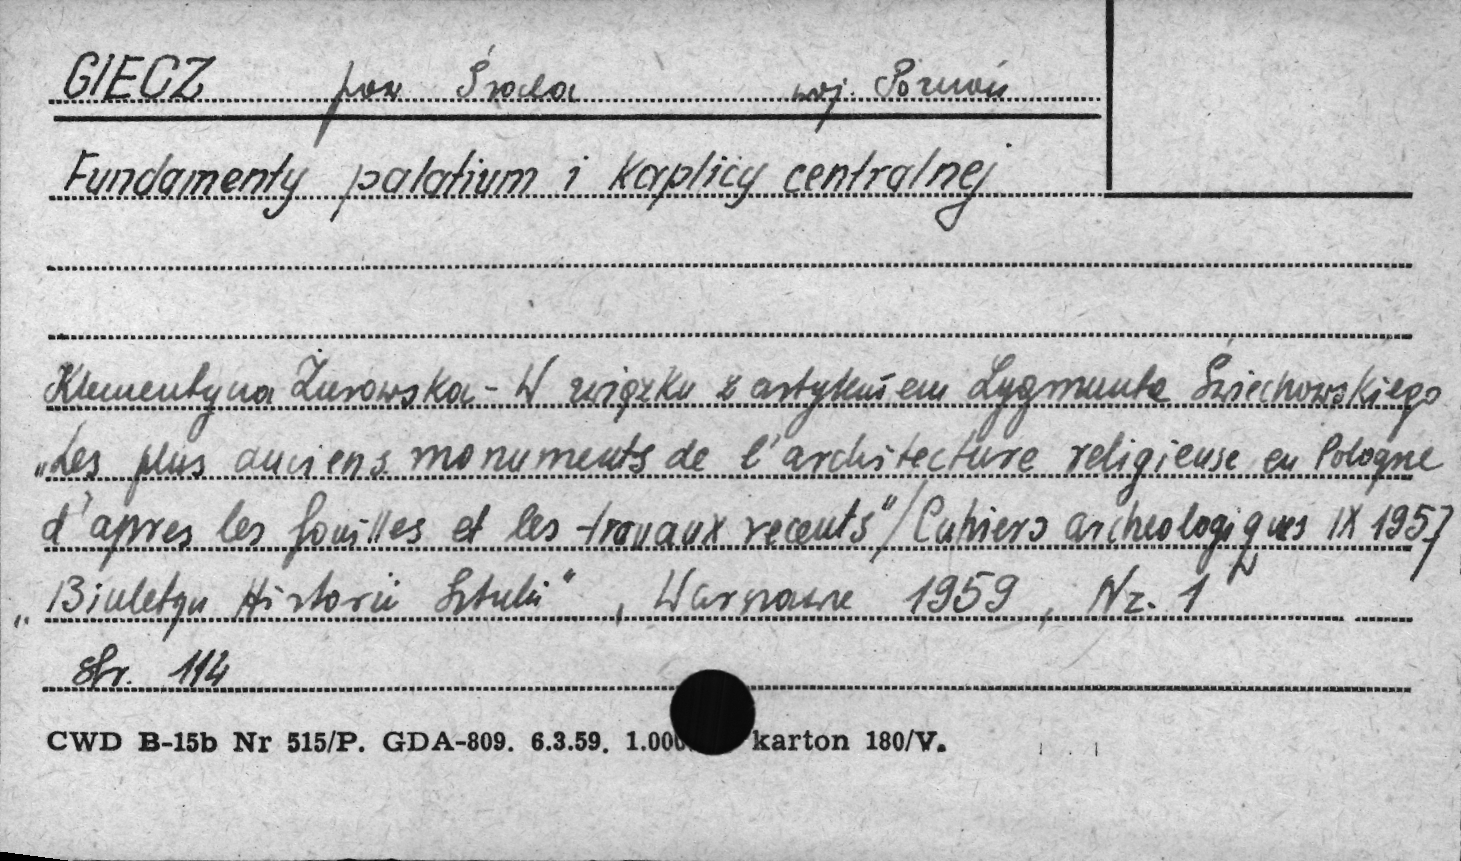 GIECZ pow Środa woj. Poznań
Fundamenty palatium i kaplicy centralnej
Klementyna Żurowska - W związku z artykułem Zygmunta Świechowskiego
„Les plus anciens monuments de l'architecture religieuse en Pologne
d'apres les fouilles et les travaux recents"/Cahiers archeologiques IX 1957
„Biuletyn Historii Sztuki", Warszawa 1959, Nr. 1 w
str. 114
CWD B-15b Nr 515/P. GDA-809. 6.3.59. 1.000 karton 180/V.